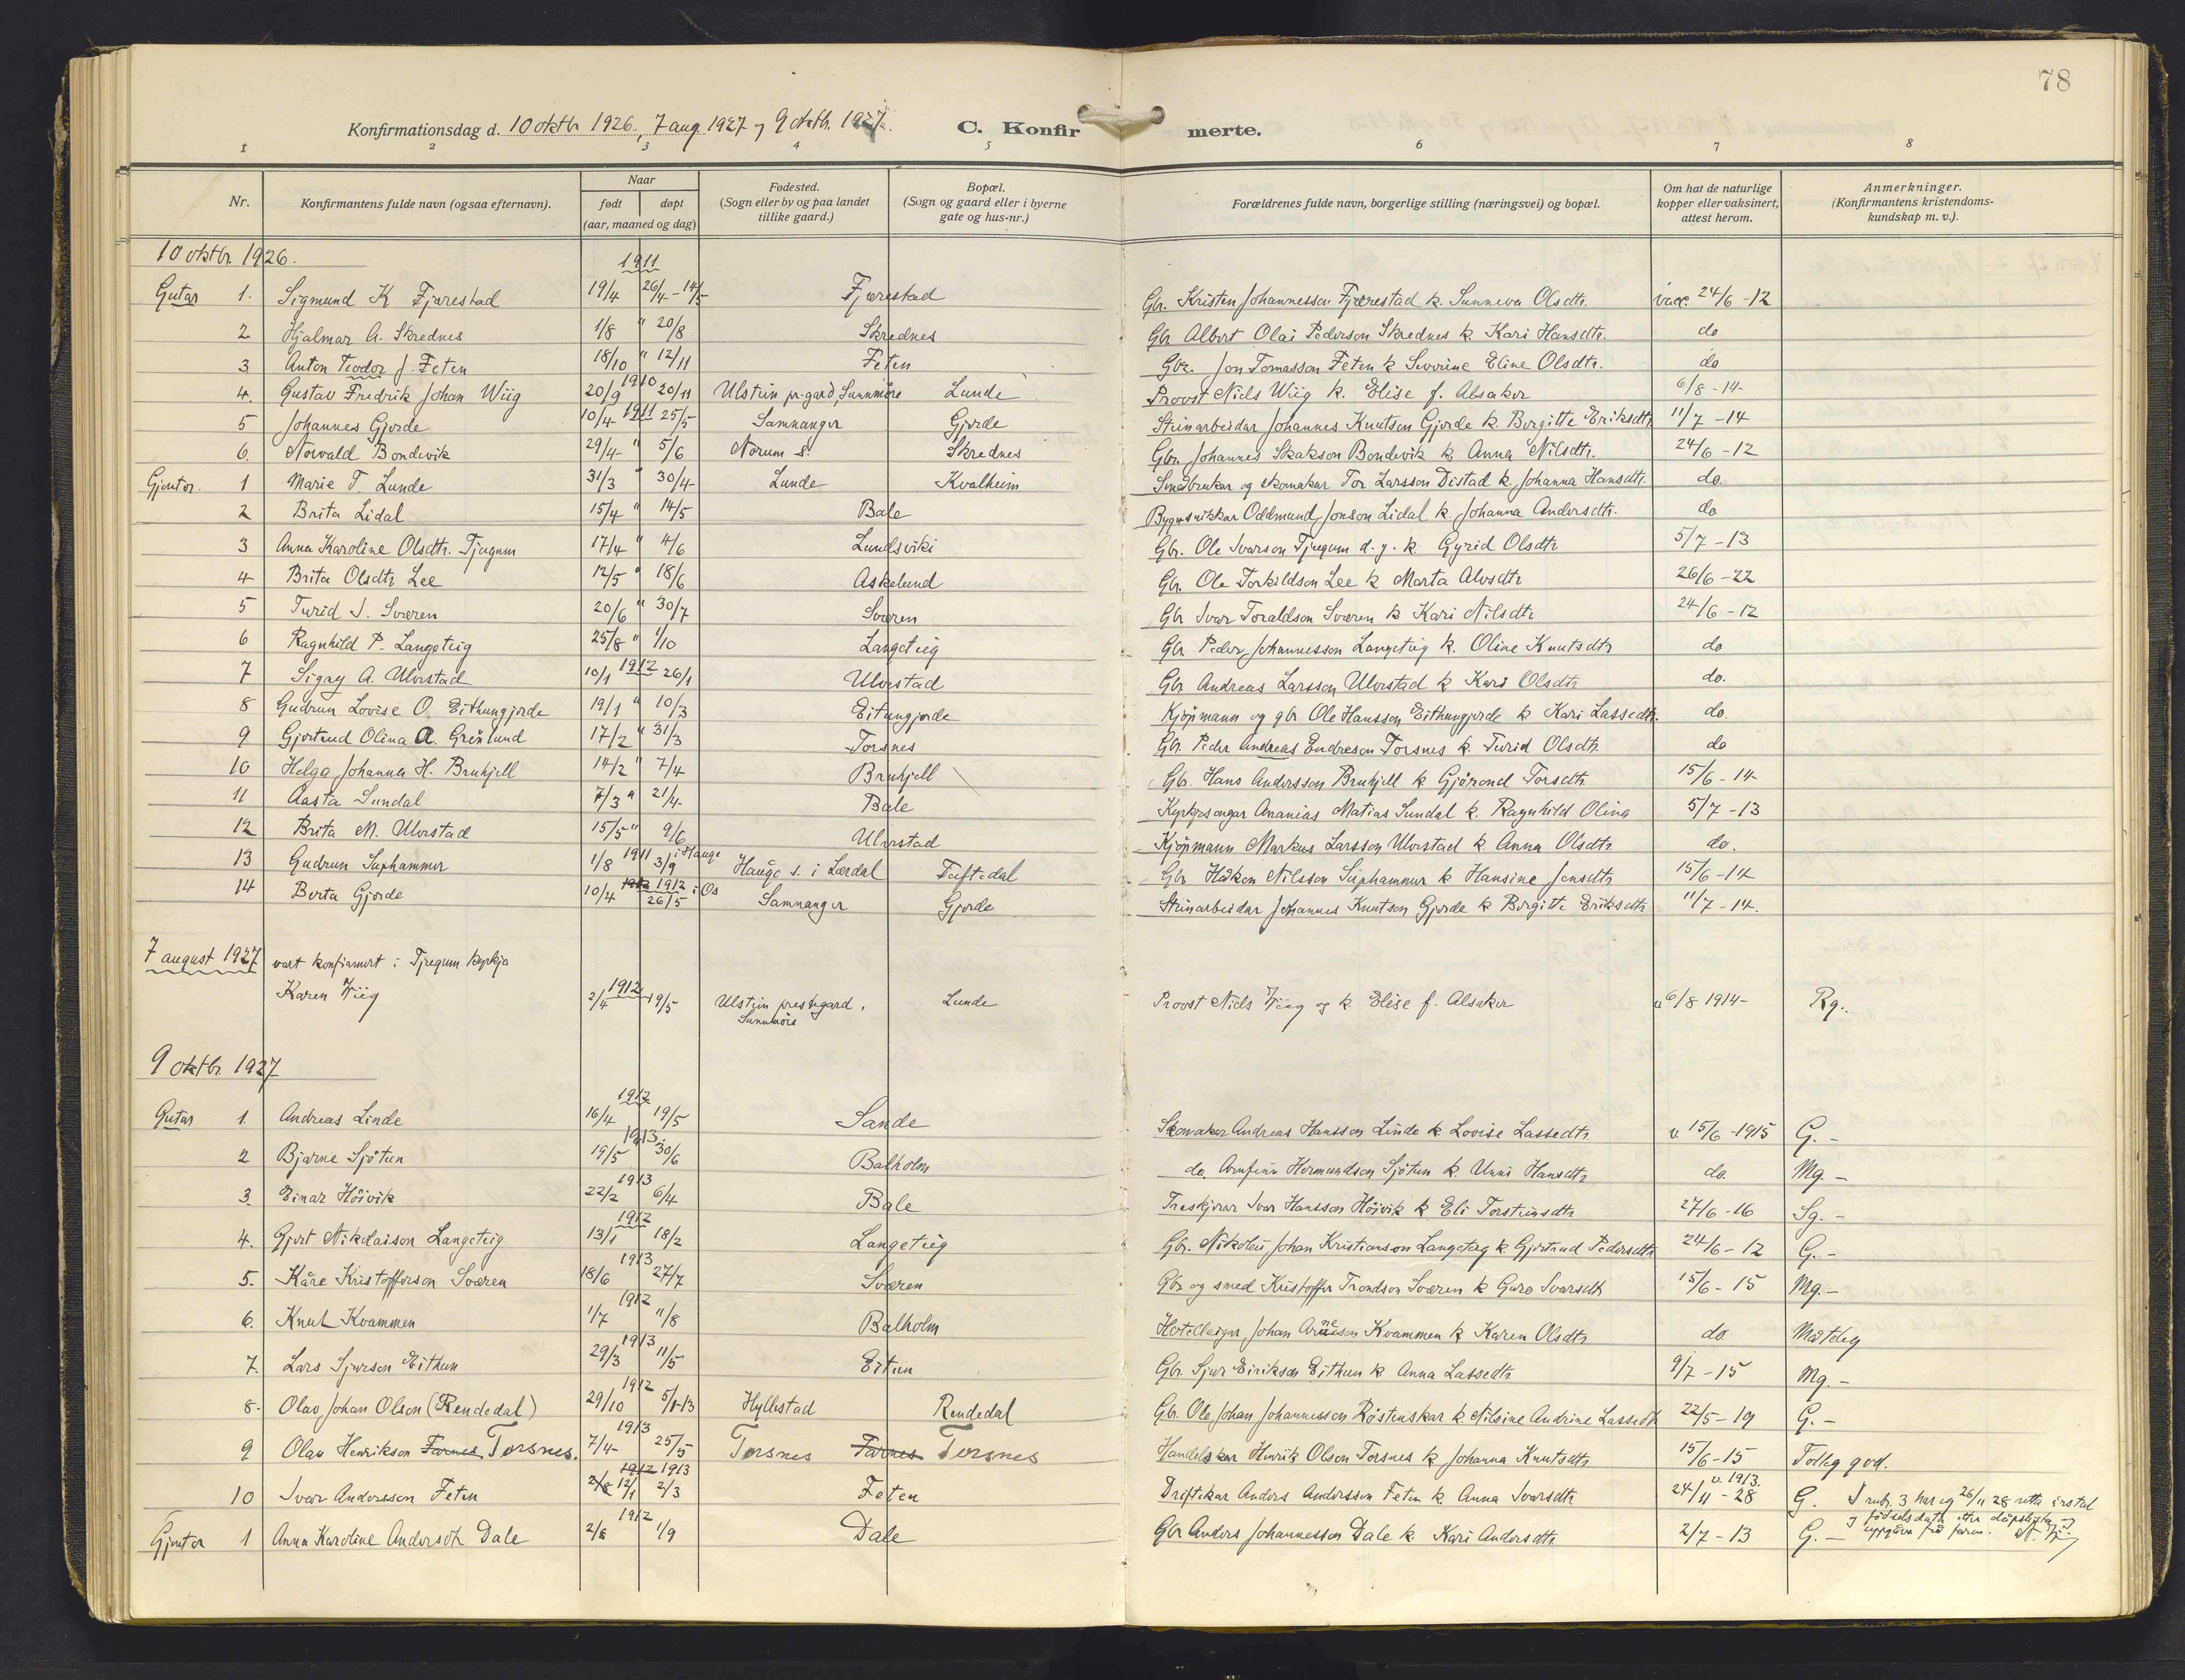 78
Konfirmationsdag d. 10 oktbr 1926, 7 aug. 1927 og 9 oktb. 1927. C. Konfir merte.
1 2 3 4 5 6 7 8
Nr. Konfirmantens fulde navn (ogsaa efternavn). Naar født døpt (aar, maaned og dag) Fødested. (Sogn eller by og paa landet tillike gaard.) Bopæl. (Sogn og gaard eller i byerne gate og hus-nr.) Forældrenes fulde navn, borgerlige stilling (næringsvei) og bopæl. Om hat de naturlige kopper eller vaksinert, attest herom. Anmerkninger. (Konfirmantens kristendoms-kundskap m. v.).
10 oktbr 1926. 1911
Gutar 1. Sigmund K Fjærestad 19/4 26/4 - 14/5 Fjærestad Gbr. Kristen Johannesson Fjærestad k. Sunneva Olsdtr. vacc. 24/6 -12
2 Hjalmar A. Skrednes 1/8 " 20/8 Skrednes Gbr Albert Olai Pederson Skrednes k. Kari Hansdtr. do
3 Anton Teodor J. Feten 18/10 " 12/11 Feten Gbr. Jon Tomasson Feten k Severine Eline Olsdtr. do
4. Gustav Fredrik Johan Wiig 20/9 1910 20/11 Ulstein pr.gard, Sunnmöre Lunde Provst Niels Wiig k. Elise f. Alsaker 6/8 -14-
5 Johannes Gjerde 10/4 1911 25/5 Samnanger Gjerde Steinarbeidar Johannes Knutson Gjerde k. Bergitte Eriksdtr 11/7 -14
6. Norvald Bondevik 29/4 " 5/6 Norum s. Skrednes Gbr. Johannes Skakson Bondevik k Anna Nilsdtr. 24/6 -12
Gjentor. 1 Marie T. Lunde 31/3 " 30/4 Lunde Kvalheim Smaabrukar og skomakar Tor Larsson Distad k. Johanna Hansdtr. do.
2 Brita Lidal 15/4 " 14/5 Bale Bygnsnikkar Oddmund Jonson Lidal k Johanna Andersdtr. do
3 Anna Karoline Olsdtr. Tjugum 17/4 " 4/6 Lundsviki Gbr. Ole Ivarson Tjugum d.y. k. Gyrid Olsdtr 5/7 -13
4 Brita Olsdtr Lee 12/5 " 18/6 Askelund Gbr. Ole Torkildson Lee k Marta Alvsdtr 26/6 -22
5 Turid I. Sværen 20/6 " 30/7 Sværen Gbr Ivar Toraldson Sværen k Kari Nilsdtr 24/6 -12
6 Ragnhild P. Langeteig 25/8 " 1/10 Langeteig Gbr Peder Johannesson Langeteig k. Oline Knutsdtr do
7 Signy A. Ulvestad 10/1 1912 26/1 Ulvestad Gbr Andreas Larsson Ulvestad k Kari Olsdtr do.
8 Gudrun Lovise O. Eithungjerde 19/1 " 10/3 Eitungjerde Kjöpmann og gbr Ole Hansson Eithungjerde k Kari Lassedtr. do.
9 Gjertrud Olina A. Grönlund 17/2 " 31/3 Torsnes Gbr. Peder Andreas Endreson Torsnes k. Turid Olsdtr do
10 Helga Johanna H. Bruhjell 14/2 " 7/4 Bruhjell Gbr. Hans Andersson Bruhjell k Gjörond Torsdtr 15/6 -14-
11 Aasta Sundal 7/3 " 21/4 Bale Kyrkjesongar Ananias Matias Sundal k. Ragnhild Olina 5/7 -13
12 Brita M. Ulvestad 15/5 " 9/6 Ulvestad Kjöpmann Markus Larsson Ulvestad k. Anna Olsdtr. do.
13 Gudrun Suphammer 1/8 1911 3/9 i Hauge Hauge s. i Lærdal Tuftedal Gbr Håkon Nilsson Suphammer k Hansine Jensdtr 15/6 -14
14 Berta Gjerde 10/4 1912 1912 26/5 i Os Samnanger Gjerde Steinarbeidar Johannes Knutson Gjerde k Bergitte Eriksdtr 11/7 -14.
7 august 1927 vart konfirmert i Tjugum kyrkja
Karen Wiig 2/4 1912 19/5 Ulstein prestegard, Sunnmöre Lunde Provst Niels Wiig og k. Elise f. Alsaker v 6/8 1914- Rg..
9 oktbr. 1927
1912
Gutar 1. Andreas Linde 16/4 19/5 Sande Skomaker Andreas Hansson Linde k. Lovise Lassedtr v. 15/6 -1915 G. -
2 Bjarne Sjötun 19/5 1913 30/6 Balholm do. Arnfinn Hermundson Sjötun k. Unni Hansdtr do. Mg. -
3. Einar Höivik 22/2 1913 6/4 Bale Treskjerar Ivar Hansson Höivik k. Eli Torsteinsdtr 27/6 -16 Sg. -
4. Gjert Nikolaison Langeteig 13/1 1912 18/2 Langeteig Gbr. Nikolai Johan Kristianson Langeteig k. Gjertrud Pedersdtr 24/6 -12 G. -
5. Kåre Kristofferson Sværen 18/6 1913 27/7 Sværen Gbr og smed Kristoffer Trondson Sværen k Guro Ivarsdtr 15/6 -15 Mg. -
6. Knut Kvammen 1/7 1912 11/8 Balholm Hotelleigar Johan Arneson Kvammen k Karen Olsdtr do Måteleg
7. Lars Sjurson Eithun 29/3 1913 11/5 Eitun Gbr. Sjur Eirikson Eithun k Anna Lassedtr 9/7 -15 Mg. -
8. Olav Johan Olson (Rendedal) 29/10 1912 5/1-13 Hyllestad Rendedal Gbr. Ole Johan Johannesson Röstenskar k. Nilsine Andrine Lassedtr 22/5 -19 G. -
9 Olav Henrikson Farnes Torsnes. 7/4 1913 25/5 Torsnes Farnes Torsnes Handelskar Henrik Olson Torsnes k Johanna Knutsdtr 15/6 -15 Tolleg god.
10 Ivar Andersson Feten 2/8 12/1 1912 1913 2/3 Feten Driftekar Anders Andersson Feten k. Anna Ivarsdtr 24/11 -28 v. 1913. G. I rubr. 3 har eg 26/11 28 retta årstal
og födselsdata etter dåpslista og
uppgåva frå faren.
Gjentor 1 Anna Karoline Andersdtr Dale 2/8 1912 1/9 Dale Gbr Anders Johannesson Dale k Kari Andersdtr 2/7 -13 G. -